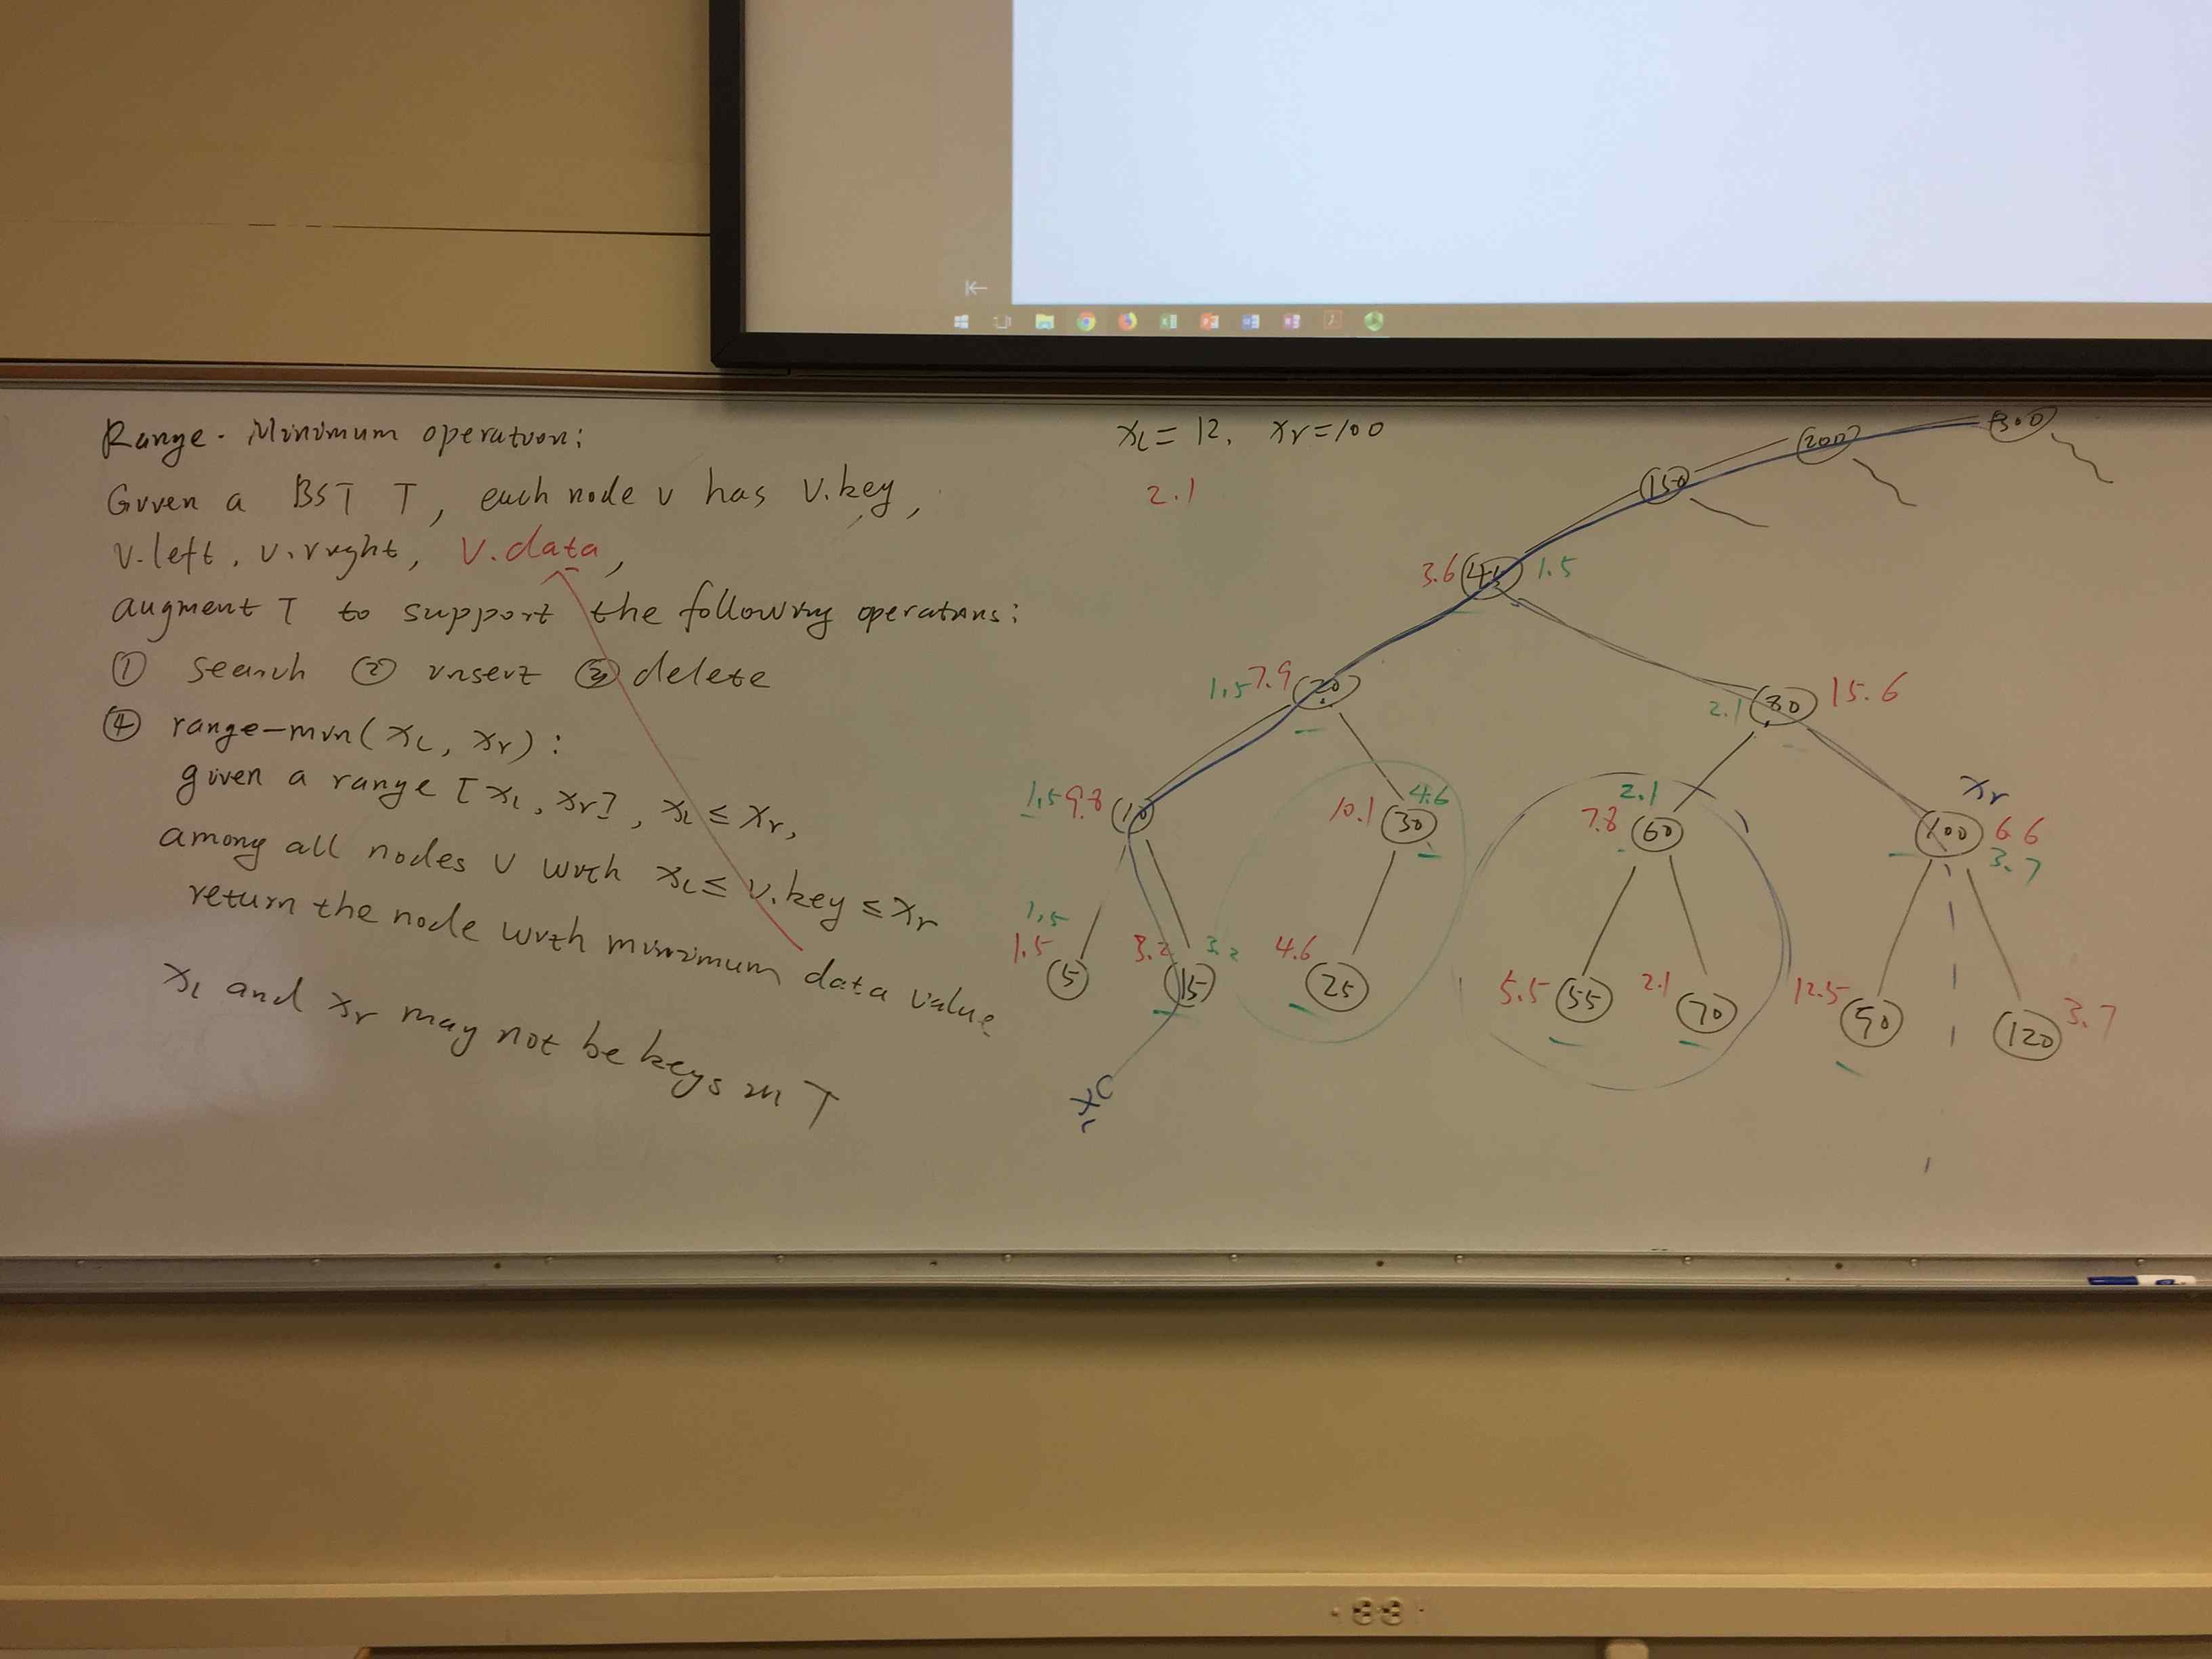 Range-Minimum operation:
Given a BST T, each node v has v.key,
v.left, v.right, v.data,
augment T to support the following operations:
① search ② insert ③ delete
④ range-min(x_L, x_r):
given a range [x_L, x_r], x_L ≤ x_r,
among all nodes v with x_L ≤ v.key ≤ x_r
return the node with minimum data value
x_L and x_r may not be keys in T
x_L = 12, x_r = 100
2.1
300
200
150
3.6 45 1.5
1.5 7.9 20
2.1 80 15.6
1.5 9.8 10
10.1 30 4.6
2.1
7.8 60
x_r
100 6.6
3.7
1.5
1.5 5
3.2 15 3.2
4.6 25
5.5 55
2.1 70
12.5 90
120 3.7
x_L